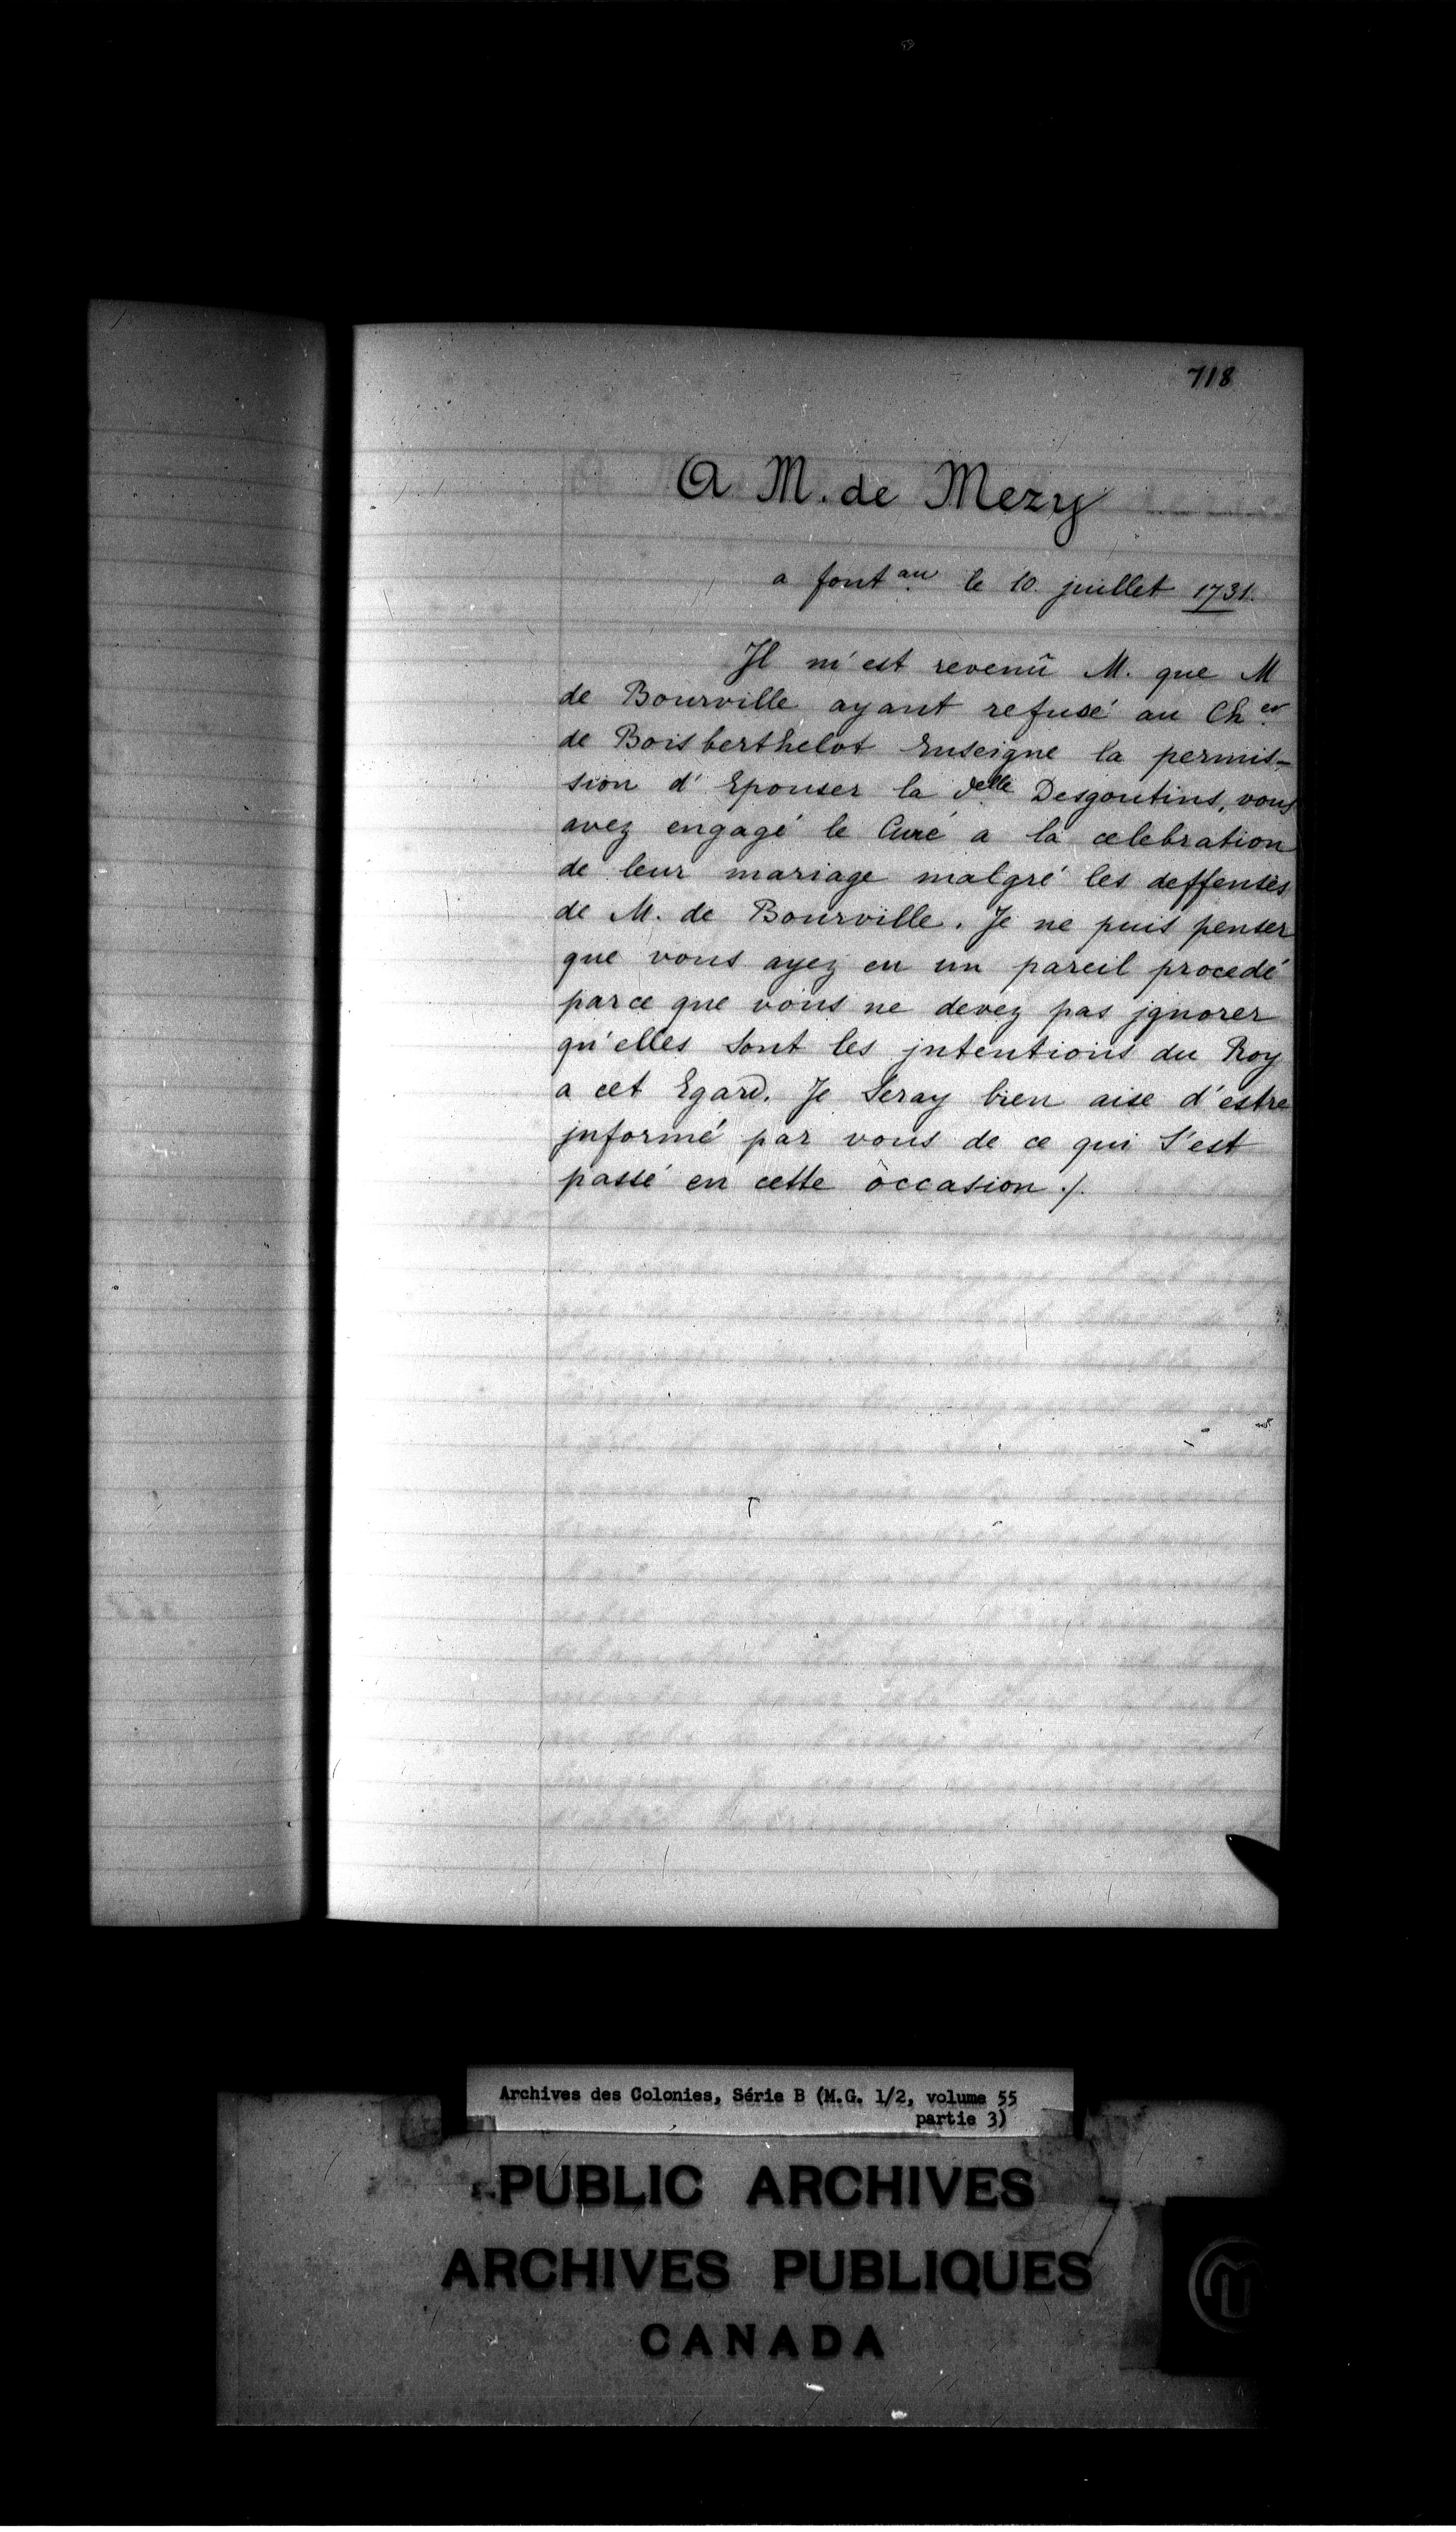 718
A M. de Mezy
a font.au le 10. juillet 1731.
Il m'est revenû M. que M
de Bourville ayant refusé au Ch.er
de Boisberthelot Enseigne la permis-
sion d'Epouser la delle Desgoutins, vous
avez engagé le Curé a la celebration
de leur mariage malgré les deffenses
de M. de Bourville. Je ne puis penser
que vous ayez eu un pareil procedé
parce que vous ne devez pas jgnorer
qu'elles sont les jntentions du Roy
a cet Egard. Je Seray bien aise d'estre
jnformé par vous de ce qui S'est
passé en cette occasion ./.
Archives des Colonies, Série B (M.G. 1/2, volume 55
partie 3)
PUBLIC ARCHIVES
ARCHIVES PUBLIQUES
CANADA